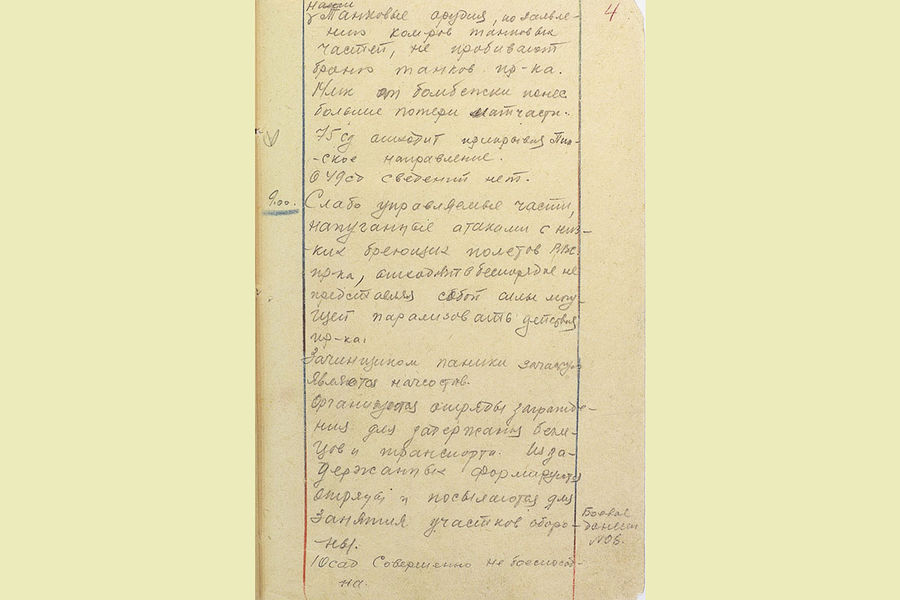 Наши
4
танковые орудия, по заявле-
нию ком-ров танковых
частей, не пробивают
броню танков пр-ка.
14мк от бомбежки понес
большие потери матчасти.
75сд отходит прикрывая Пин-
-ское направление.
О 49сд сведений нет.
9.00.
Слабо управляемые части,
напуганные атаками с низ-
ких бреющих полетов ВВС
пр-ка, отходят в беспорядке не
представляя собой силы могу-
щей парализовать действия
пр-ка.
Зачинщиком паники зачастую
является начсостав.
Организуются отряды загражде-
ния для задержания бегле-
цов и транспорта. Из за-
держанных формируются
отряды и посылаются для
занятия участков оборо-
ны.
Боевое
донесен
№06.
10сад совершенно не боеспособ-
на.